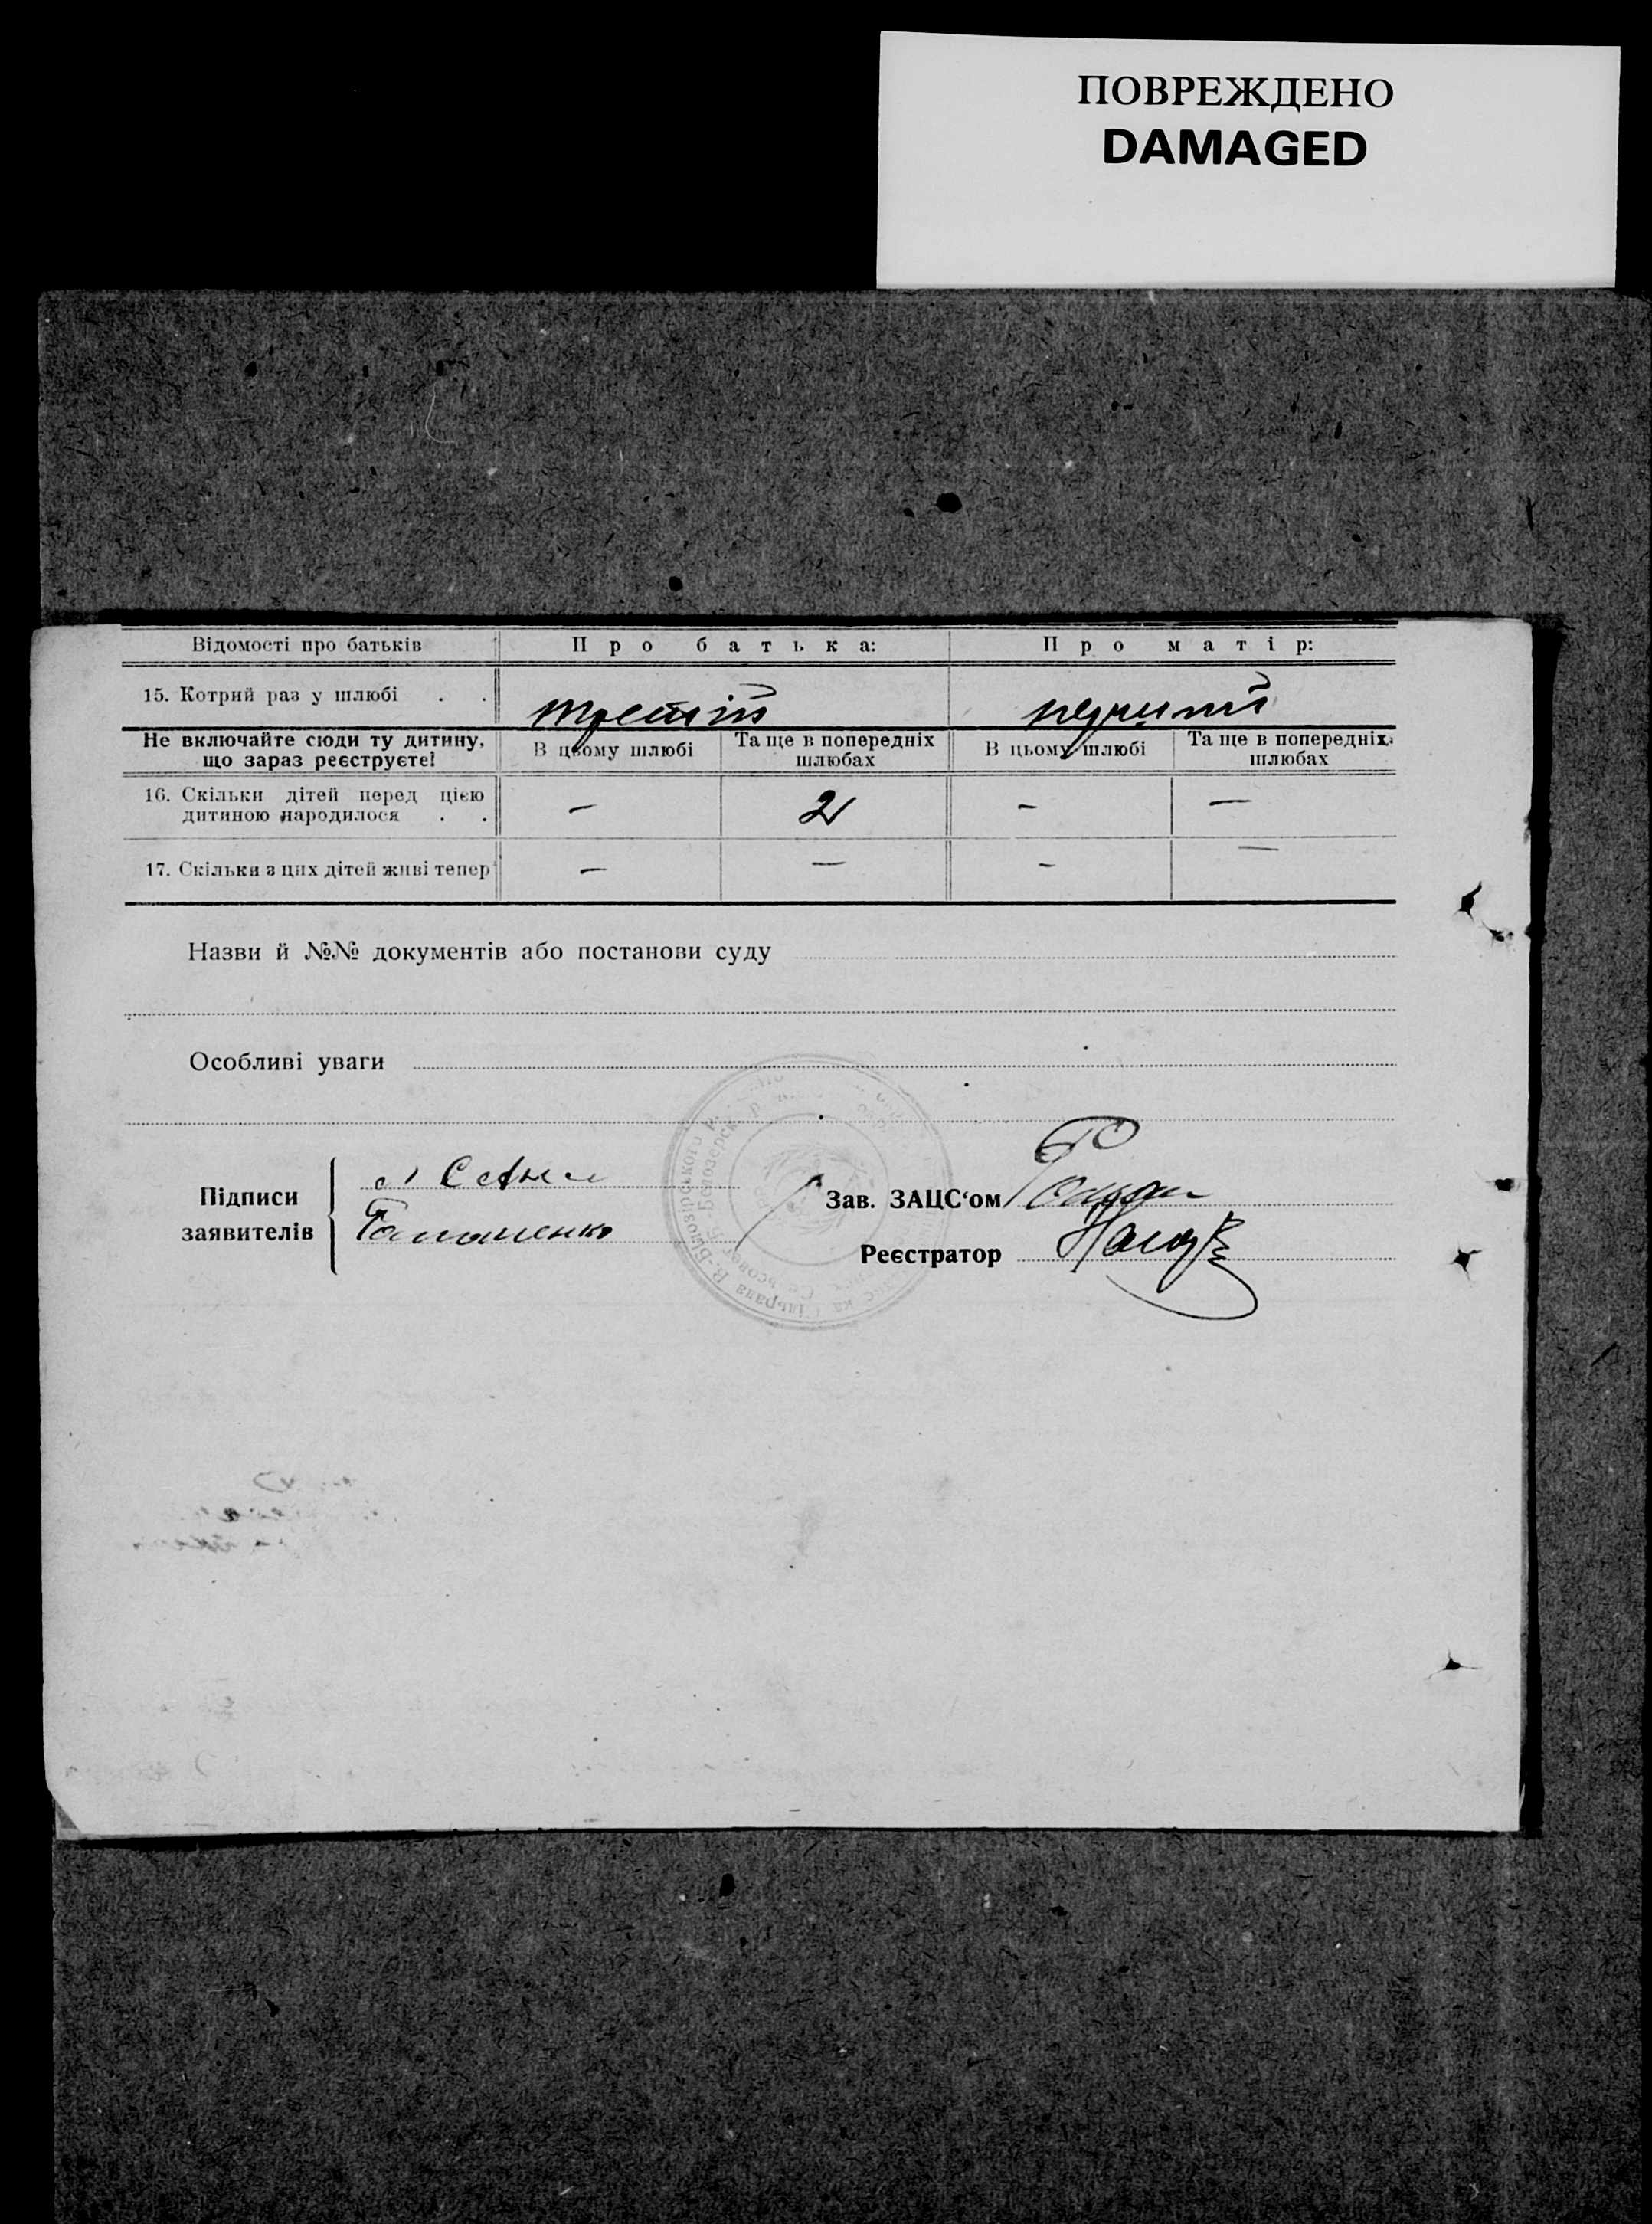 ПОВРЕЖДЕНО
DAMAGED
Відомості про батьків Про батька: Про матір:
15. Котрий раз у шлюбі . . третій перший
Не включайте сюди ту дитину, що зараз реєструєте! В цьому шлюбі Та ще в попередніх шлюбах В цьому шлюбі Та ще в попередніх шлюбах
16. Скільки дітей перед цією дитиною народилося . . — 2 — —
17. Скільки з цих дітей живі тепер — — — —
Назви й №№ документів або постанови суду
Особливі уваги
Підписи заявителів
Зав. ЗАЦС‘ом
Реєстратор